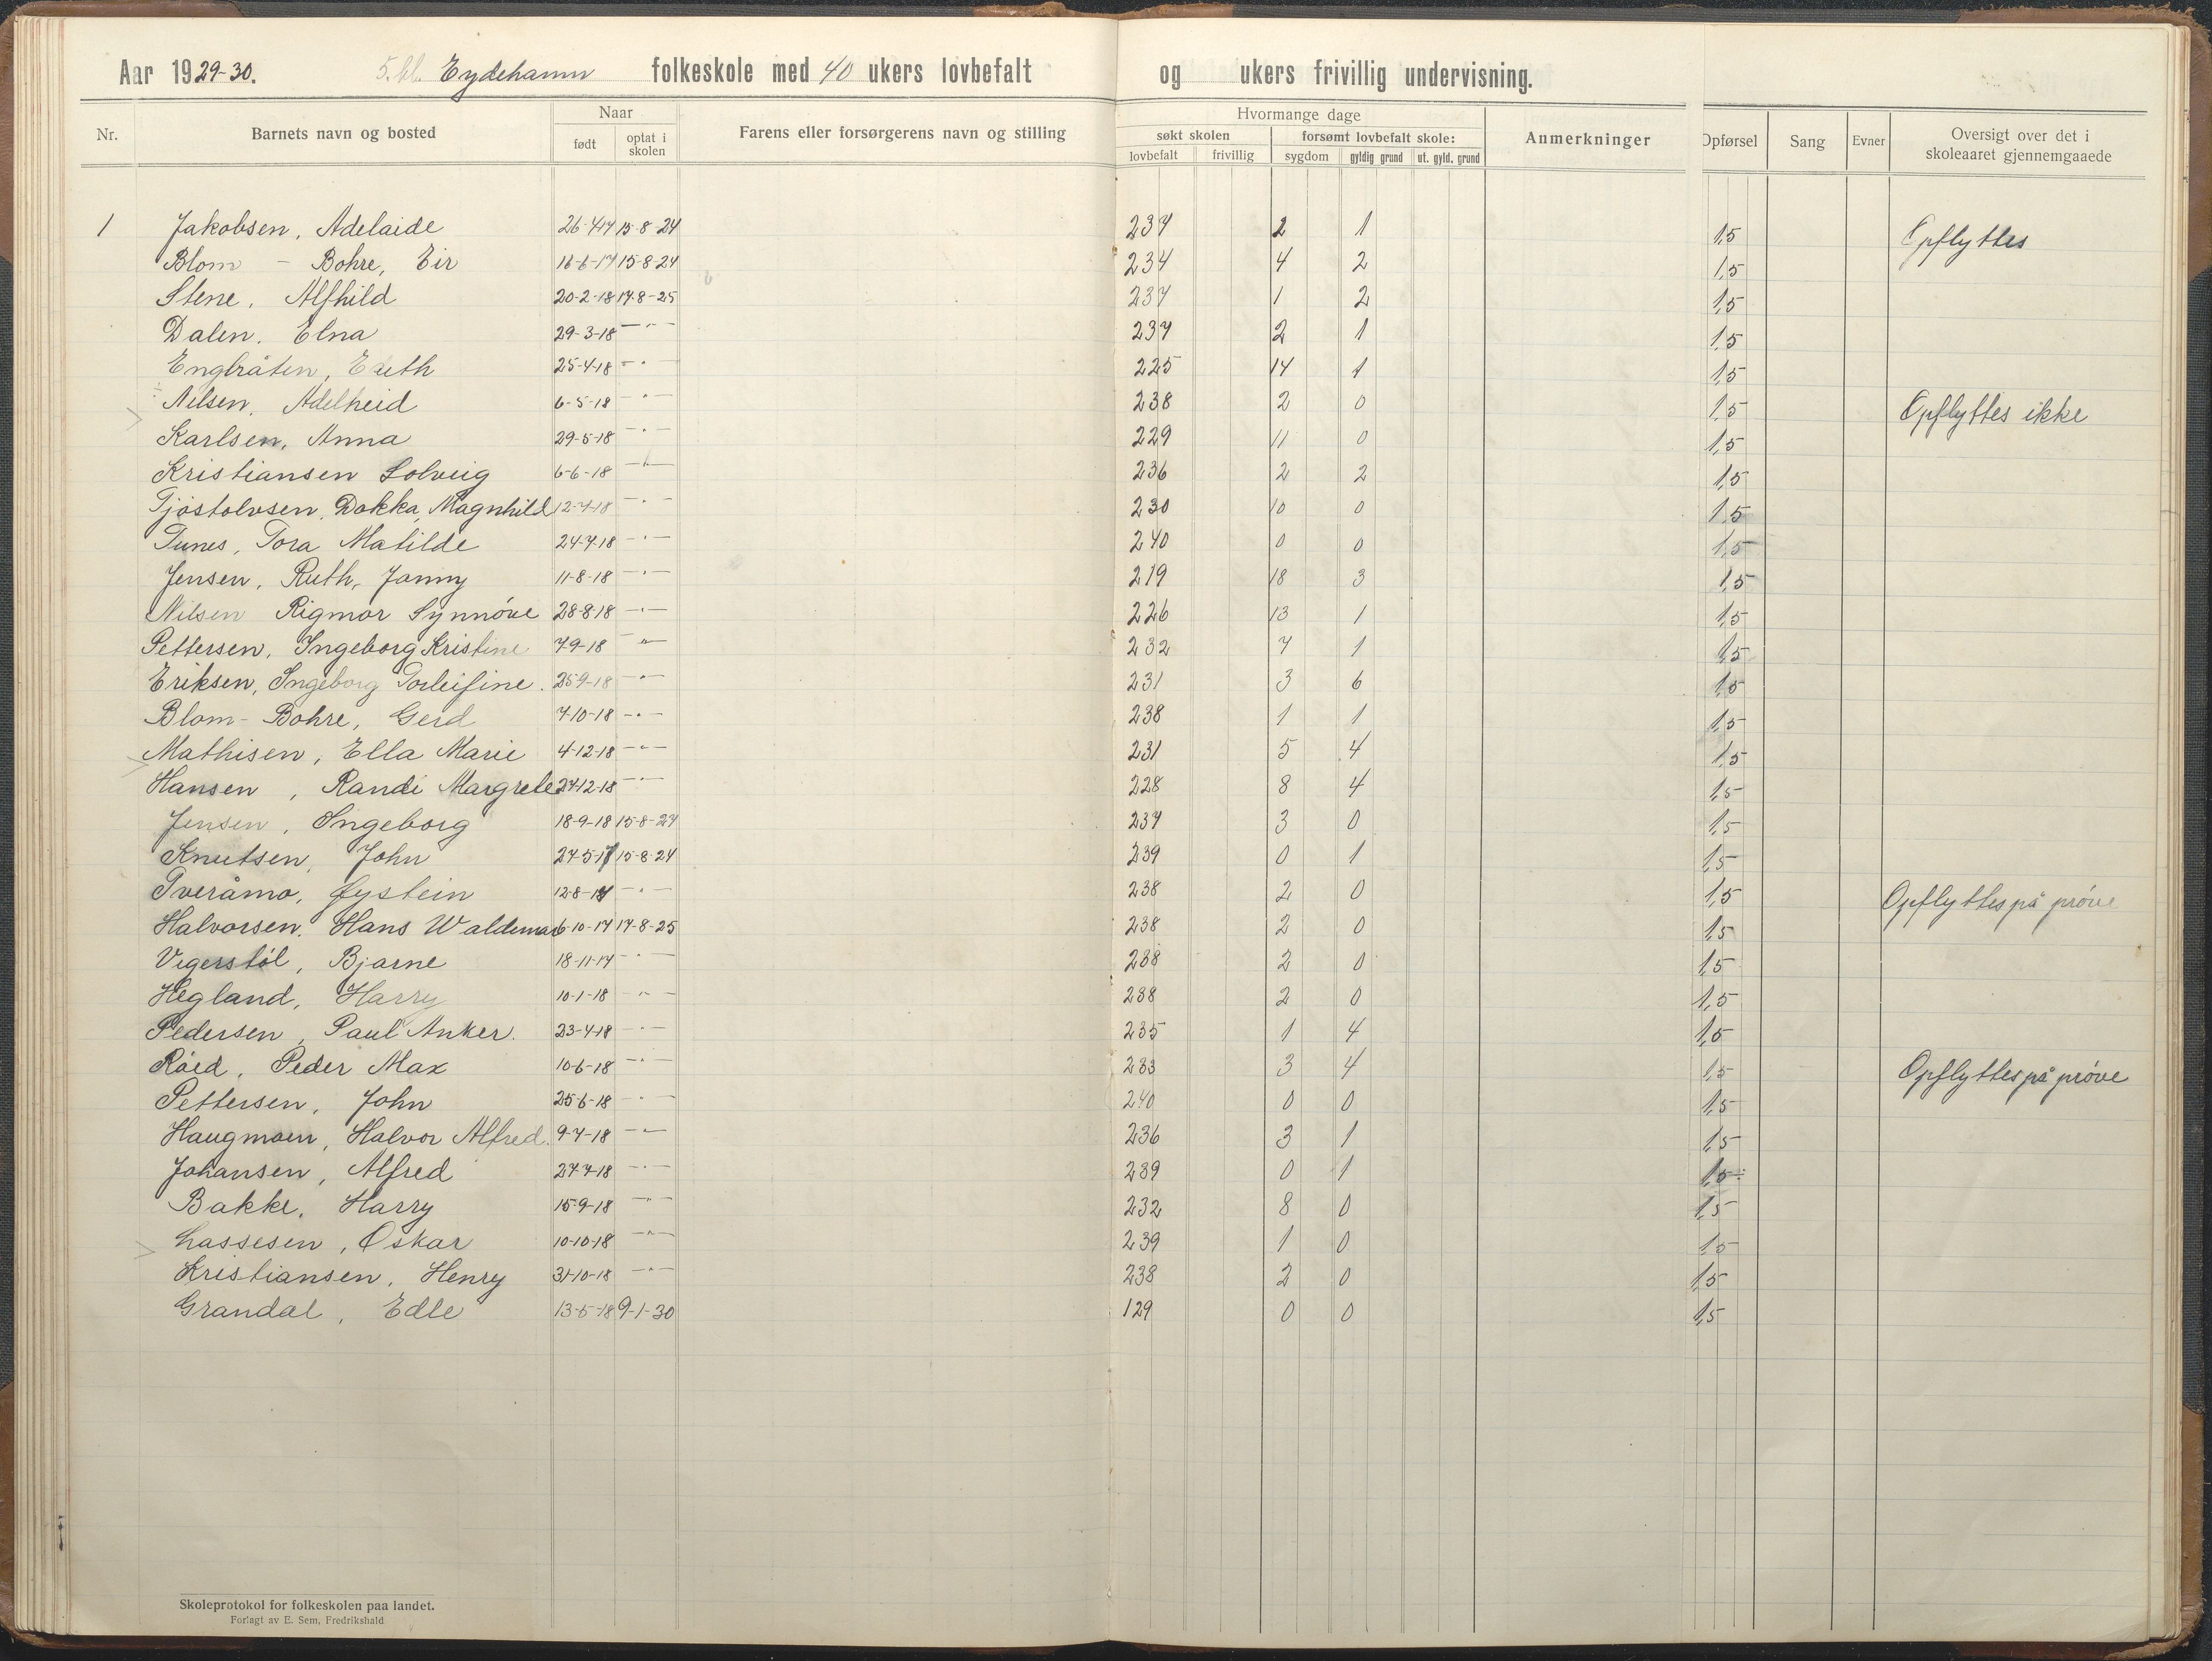 Aar 1929-30. 5. kl. Eydehamn folkeskole med 40 ukers lovbefalt og ukers frivillig undervisning.
Nr. Barnets navn og bosted Naar Farens eller forsørgerens navn og stilling Hvormange dage Anmerkninger Opførsel Sang Evner Oversigt over det i skoleaaret gjennemgaaede
født optat i skolen søkt skolen forsømt lovbefalt skole:
lovbefalt frivillig sygdom gyldig grund ut. gyld. grund
1 Jakobsen, Adelaide 26-4-17 15-8-24 237 2 1 1,5 Opflyttes
Blom - Bohre, Eir 16-6-17 15-8-24 234 4 2 1,5
Stene, Alfhild 20-2-18 17-8-25 237 1 2 1,5
Dalen, Elna 29-3-18 -"- 237 2 1 1,5
Englråten, Edith 25-4-18 -"- 225 14 1 1,5
Nilsen, Adelheid 6-5-18 -"- 238 2 0 1,5 Opflyttes ikke
Karlsen, Anna 29-5-18 -"- 229 11 0 1,5
Kristiansen Solveig 6-6-18 -"- 236 2 2 1,5
Tjøstolvsen, Dokka, Magnhild 12-7-18 -"- 230 10 0 1,5
Tunes, Tora Matilde 24-7-18 -"- 240 0 0 1,5
Jensen, Ruth, Janny 11-8-18 -"- 219 18 3 1,5
Nilsen Rigmor Synnöve 28-8-18 -"- 226 13 1 1,5
Pettersen, Ingeborg Kristine 7-9-18 -"- 232 7 1 1,5
Eriksen, Ingeborg Torleifine. 25-9-18 -"- 231 3 6 1,5
Blom-Bohre, Gerd 7-10-18 -"- 238 1 1 1,5
Mathisen, Ella Marie 4-12-18 -"- 231 5 4 1,5
Hansen, Randi Margrete 27-12-18 -"- 228 8 4 1,5
Jensen, Ingeborg 18-9-18 15-8-24 237 3 0 1,5
Knutsen, John 27-5-17 15-8-24 239 0 1 1,5
Tveråmo, Øystein 12-8-17 -"- 238 2 0 1,5 Opflyttes på pröve
Halvorsen, Hans Waldemar 6-10-17 17-8-25 238 2 0 1,5
Vegerstöl, Bjarne 18-11-17 -"- 238 2 0 1,5
Hegland, Harry 10-1-18 -"- 238 2 0 1,5
Pedersen, Paul Anker. 23-4-18 -"- 235 1 4 1,5
Röed, Peder Max 10-6-18 -"- 233 3 4 1,5 Opflyttes på pröve
Pettersen, John 25-6-18 -"- 240 0 0 1,5
Haugmoen, Halvor Alfred. 9-7-18 -"- 236 3 1 1,5
Johansen, Alfred 27-7-18 -"- 239 0 1 1,5
Bakke, Harry 15-9-18 -"- 232 8 0 1,5
Lassesen, Oskar 10-10-18 -"- 239 1 0 1,5
Kristiansen, Henry 31-10-18 -"- 238 2 0 1,5
Grandal, Edle 13-5-18 9-1-30 129 0 0 1,5
Skoleprotokol for folkeskolen paa landet.
Forlagt av E. Sem, Fredrikshald